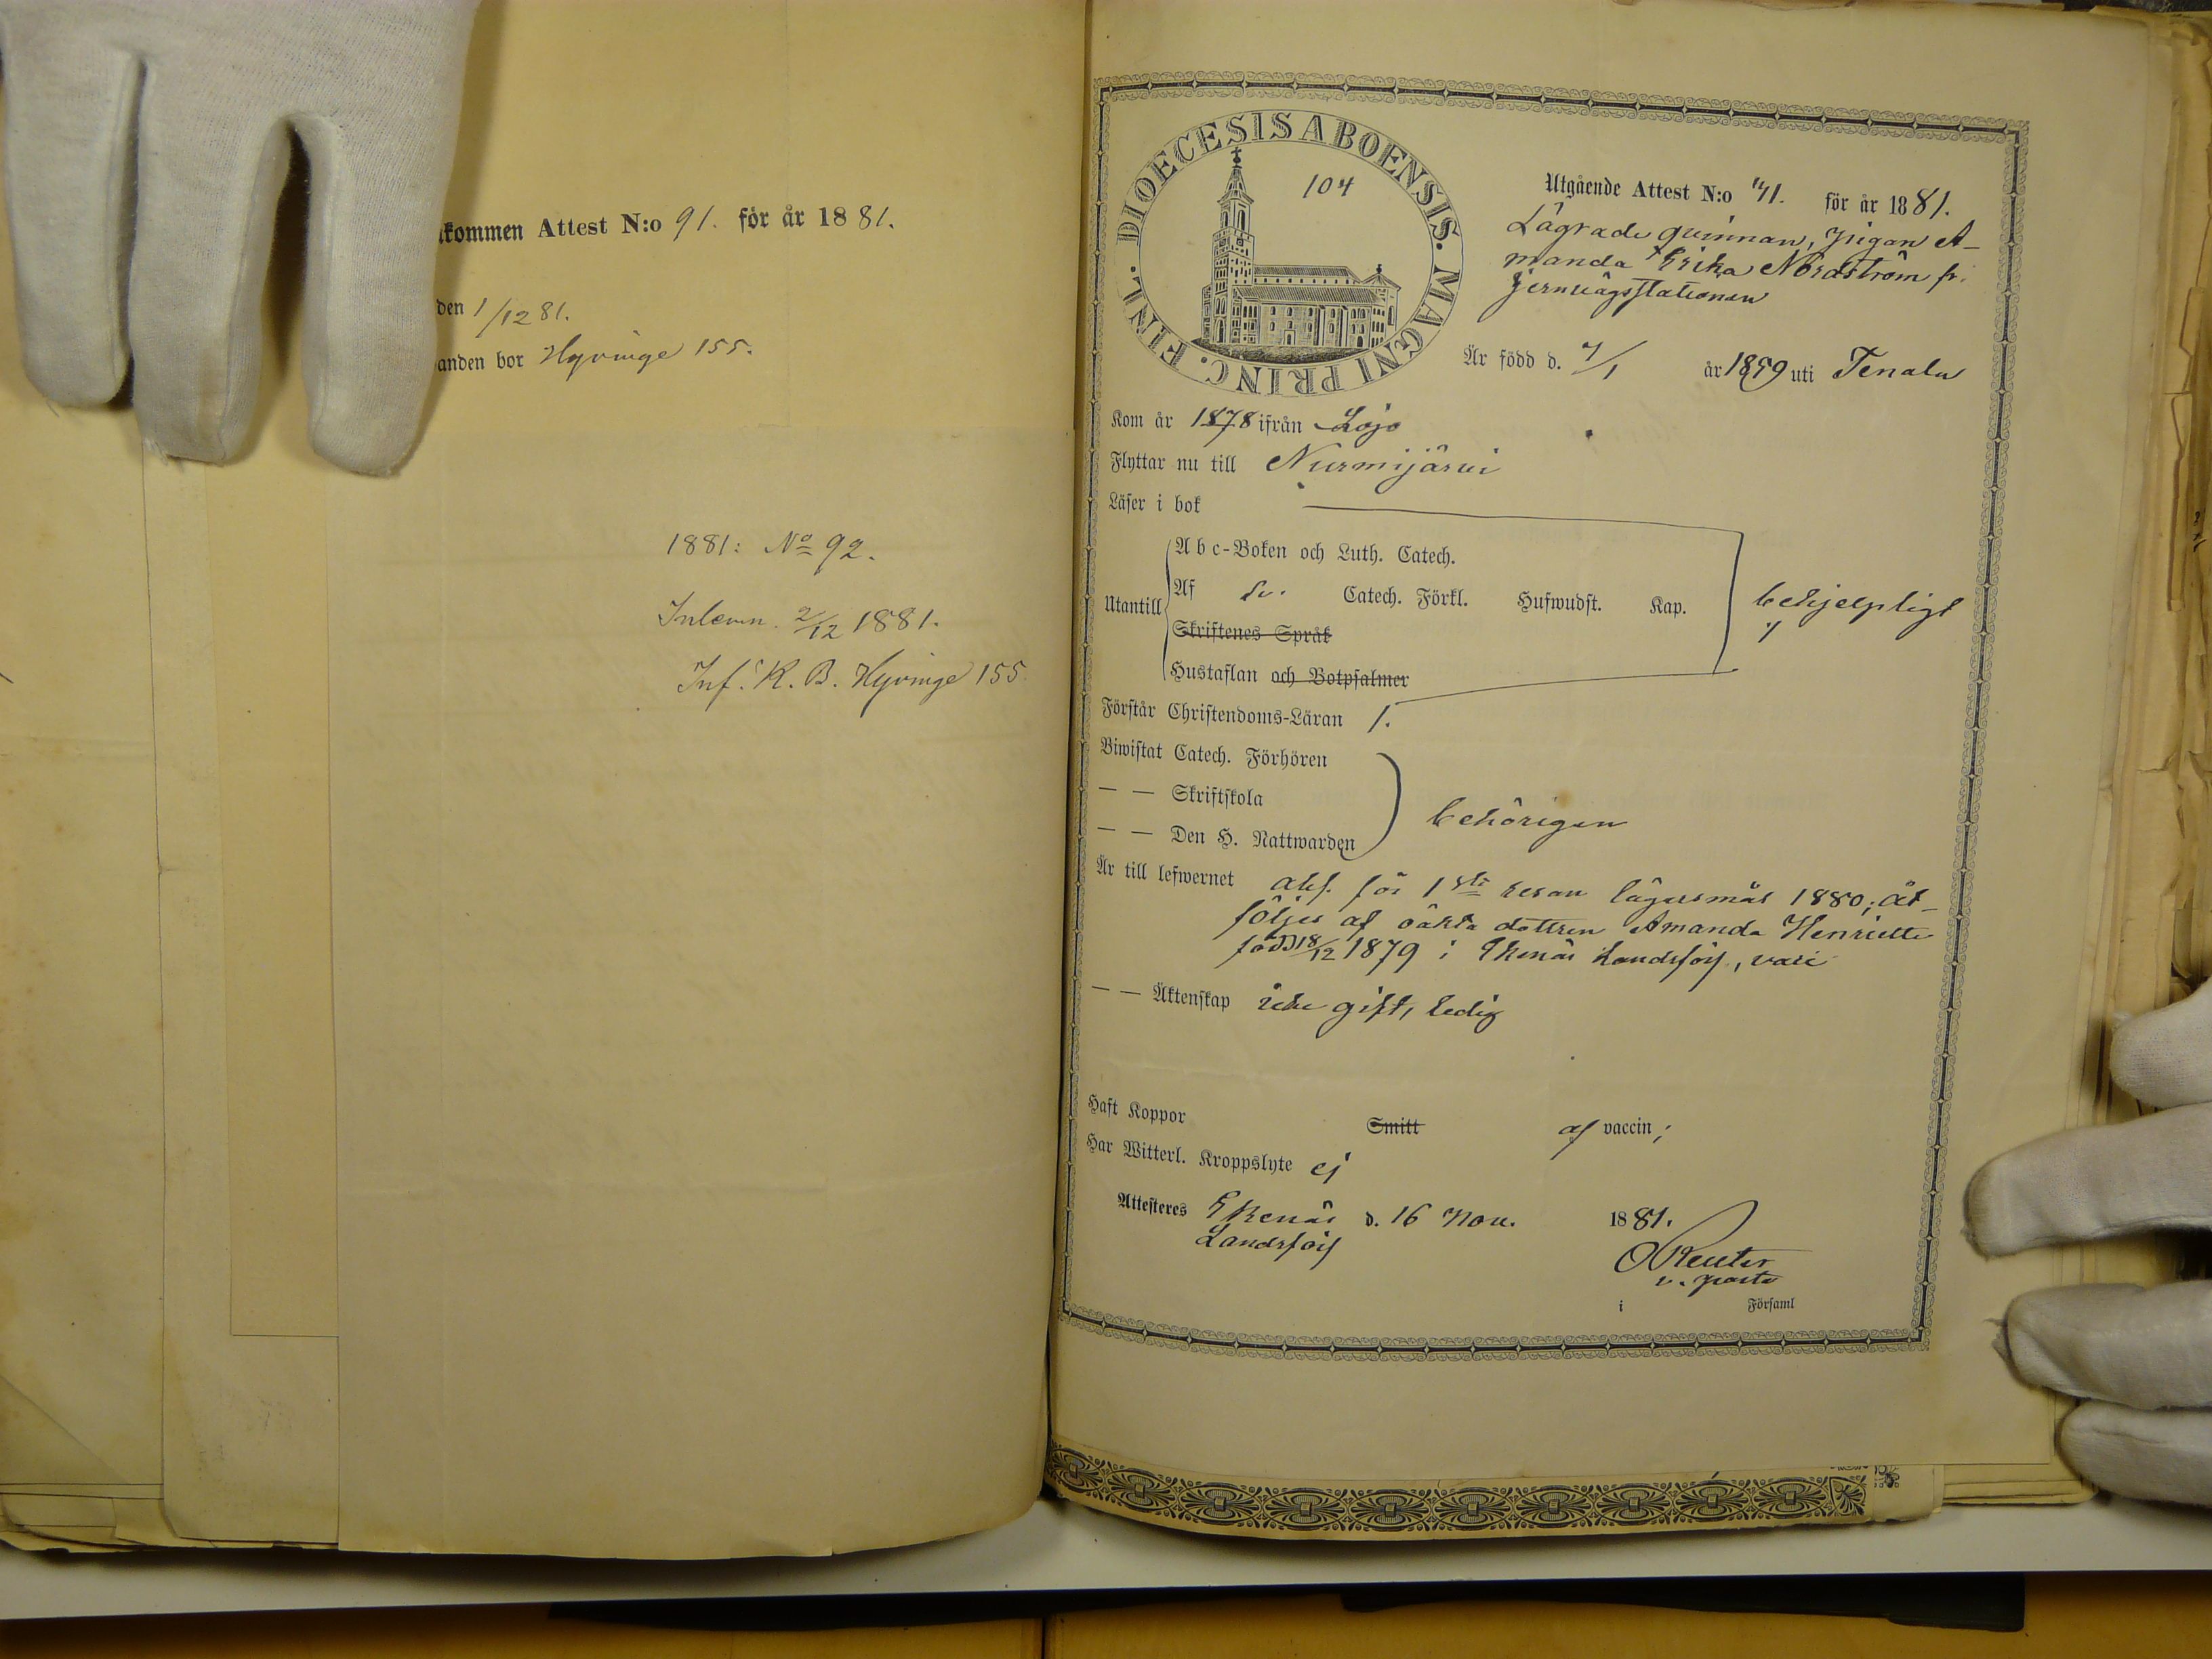 kommen Attest N:o 91. för år 1881.
den 1/12 81.
anden bor Hyvinge 155.
1881: No 92.
Inlemn. 2/12 1881.
Inf. K. B. Hyvinge 155
DIOECESIS ABOENSIS. MAGNI PRINC. FINL.
104
Utgående Attest N:o 41. för år 1881.
Lägrade qvinnan, pigan A-
manda Erika Nordström fr.
jernvägsstationen
Är född d. 4/1 år 1859 uti Tenala
Kom år 1878 ifrån Lojo
Flyttar nu till Nurmijärvi
Läser i bok
Utantill
A b c-Boken och Luth. Catech.
Af Sv. Catech. Förkl. Hufwudst. Kap.
behjelpligt
Skriftenes Språk
Hustaflan och Botpsalmer
Förstår Christendoms-Läran 1.
Biwistat Catech. Förhören
— — Skriftskola
— — Den H. Nattwarden
behörigen
Är till lefwernet abs. för 1sta resan lägersmål 1880; åt-
följes af oäkta dottren Amanda Henriette
född 18/12 1879 i Ekenäs Landsförs., vacc
— — Äktenskap icke gift, ledig
Haft Koppor Smitt af vaccin;
Har Witterl. Kroppslyte ej
Attesteres Ekenäs d. 16 Nov. 1881.
Landsförs
O Reuter
v. past
i Församl